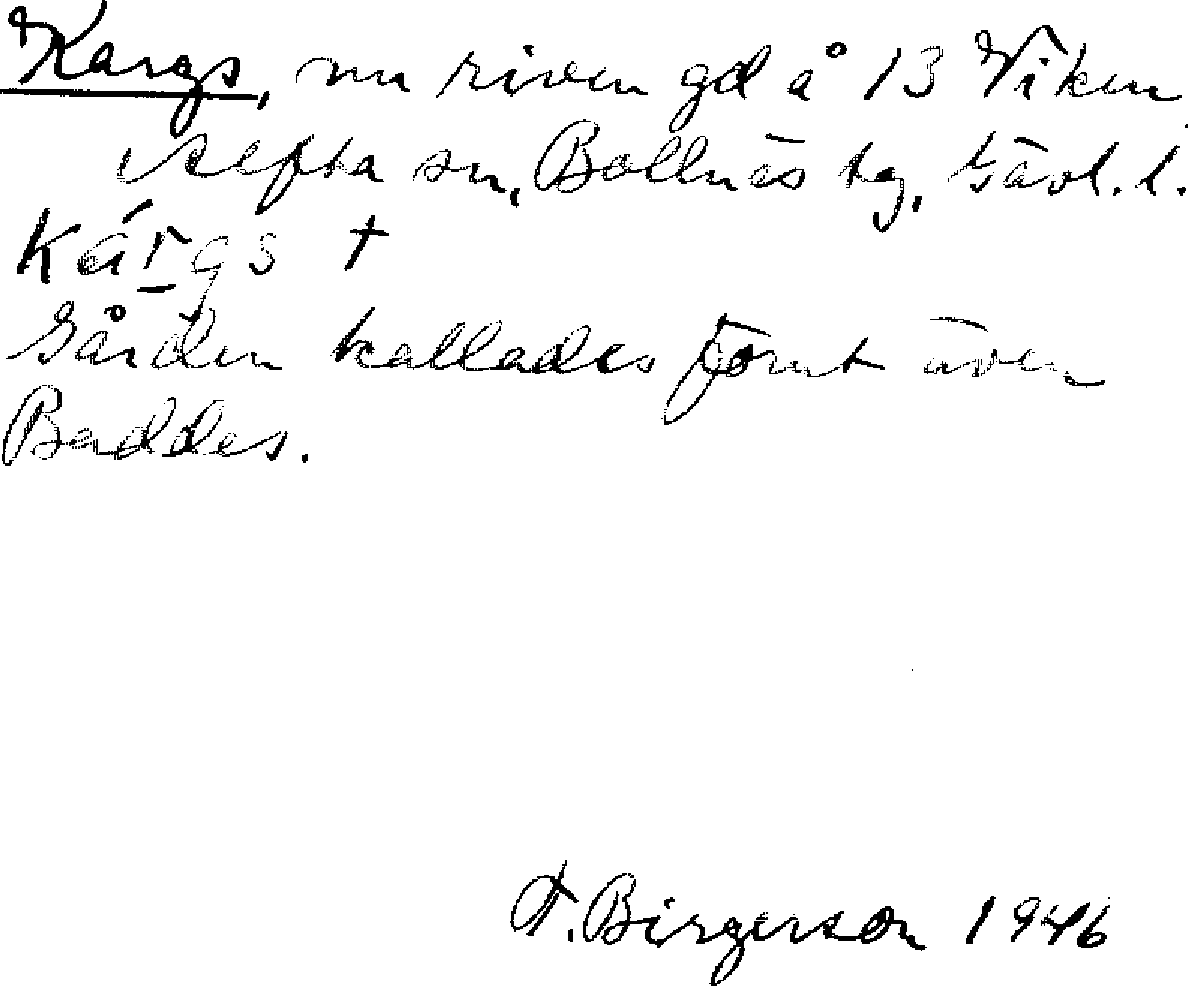 Kargs, nu riven gd å 13 Viken
Alfta sn, Bollnäs tg, Gävl. l.
kárgs †
Gården kallades förut även
Baddes.
F. Birgerson 1946